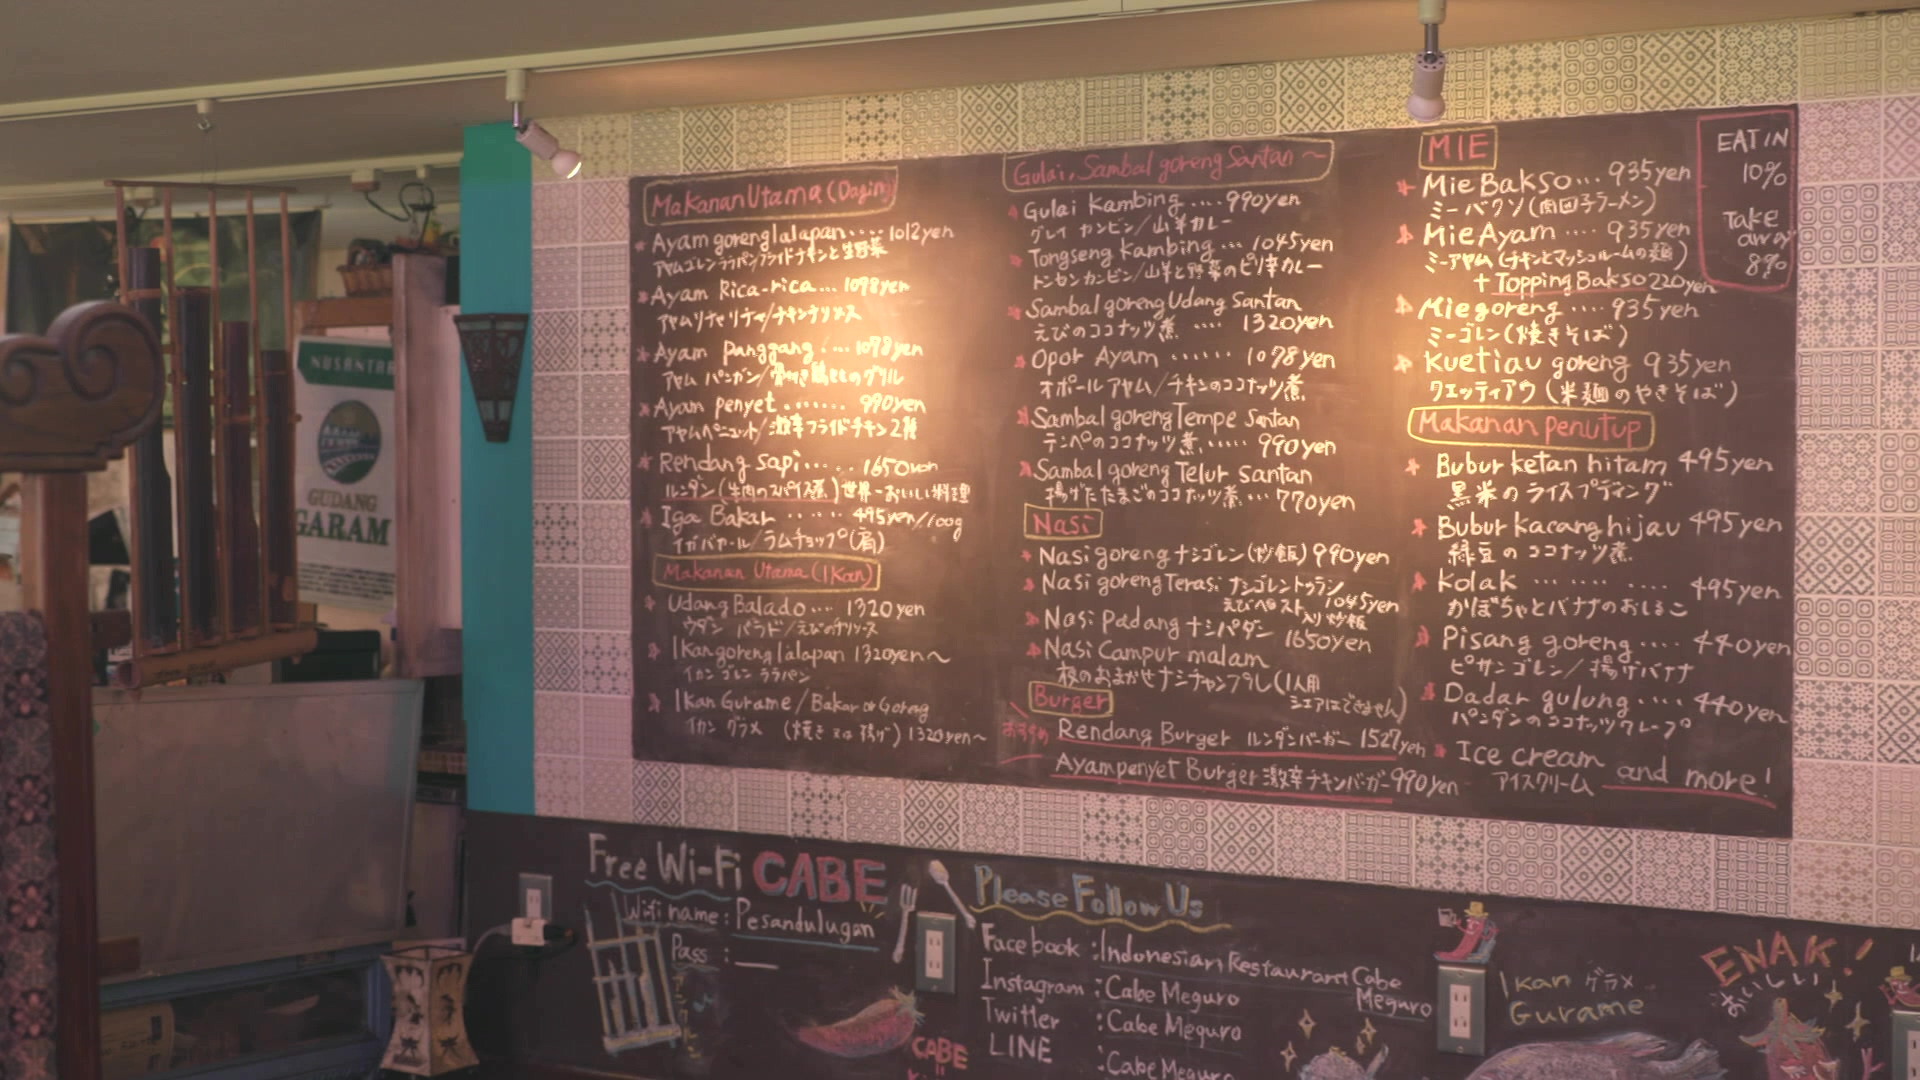 NUSANTARA
GUDANG
GARAM
Makanan Utama (Daging)
Ayam goreng lalapan .... 1012yen
アヤムゴレンララパン/フライドチキンと生野菜
Ayam Rica-rica... 1098yen
アヤムリチャリチャ/チキンチリソース
Ayam Panggang .... 1078yen
アヤム パンガン/骨付き鶏ももグリル
Ayam Penyet ........ 990yen
アヤムペニェット/激辛フライドチキン2種
Rendang sapi..... 1650yen
ルンダン(牛肉のスパイス煮)世界一おいしい料理
Iga Bakar ...... 495yen/100g
イガバカール/ラムチョップ(肩)
Makanan Utama (Ikan)
Udang Balado.... 1320yen
ウダン バラド/えびのチリソース
Ikan goreng lalapan 1320yen~
イカンゴレン ララパン
Ikan Gurame/Bakar or Goreng
イカン グラメ (焼き又は揚げ) 1320yen~
Gulai, Sambal goreng Santan ~
Gulai Kambing .... 990yen
グレイ カンビン/山羊カレー
Tongseng kambing ... 1045yen
トンセンカンビン/山羊と野菜のピリ辛カレー
Sambal goreng Udang Santan
えびのココナッツ煮 .... 1320yen
Opor Ayam ...... 1078yen
オポールアヤム/チキンのココナッツ煮
Sambal goreng Tempe Santan
テンペのココナッツ煮...... 990yen
Sambal goreng Telur santan
揚げたたまごのココナッツ煮.... 770yen
Nasi
Nasi goreng ナシゴレン(炒飯) 990yen
Nasi goreng Terasi ナシゴレントゥラシ
えびペースト入り炒飯 1045yen
Nasi Padang ナシパダン 1650yen
Nasi Campur malam
夜のおまかせナシチャンプル(1人用
シェアはできません)
Burger
おすすめ
Rendang Burger ルンダンバーガー 1527yen
Ayampenyet Burger 激辛チキンバーガー 990yen
MIE
Mie Bakso... 935yen
ミーバクソ(肉団子ラーメン)
Mie Ayam .... 935yen
ミーアヤム(チキンとマッシュルームの麺)
+ Topping Bakso 220yen
Mie goreng .... 935yen
ミーゴレン(焼きそば)
Kuetiau goreng 935yen
クエッティアウ(米麺のやきそば)
Makanan penutup
Bubur ketan hitam 495yen
黒米のライスプディング
Bubur kacang hijau 495yen
緑豆のココナッツ煮
Kolak ... ... .... 495yen
かぼちゃとバナナのおしるこ
Pisang goreng.... 440yen
ピサンゴレン/揚げバナナ
Dadar gulung..... 440yen
パンダンのココナッツクレープ
Ice cream and more!
アイスクリーム
EAT IN
10%
Take
away
8%
Free Wi-Fi CABE
Wifi name: Pesandulugan
Pass :
CABE
Please Follow Us
Facebook :Indonesian Restaurant Cabe
Meguro
Instagram :Cabe Meguro
Twitter :Cabe Meguro
LINE :Cabe Meguro
Ikan グラメ
Gurame
ENAK!
おいしい